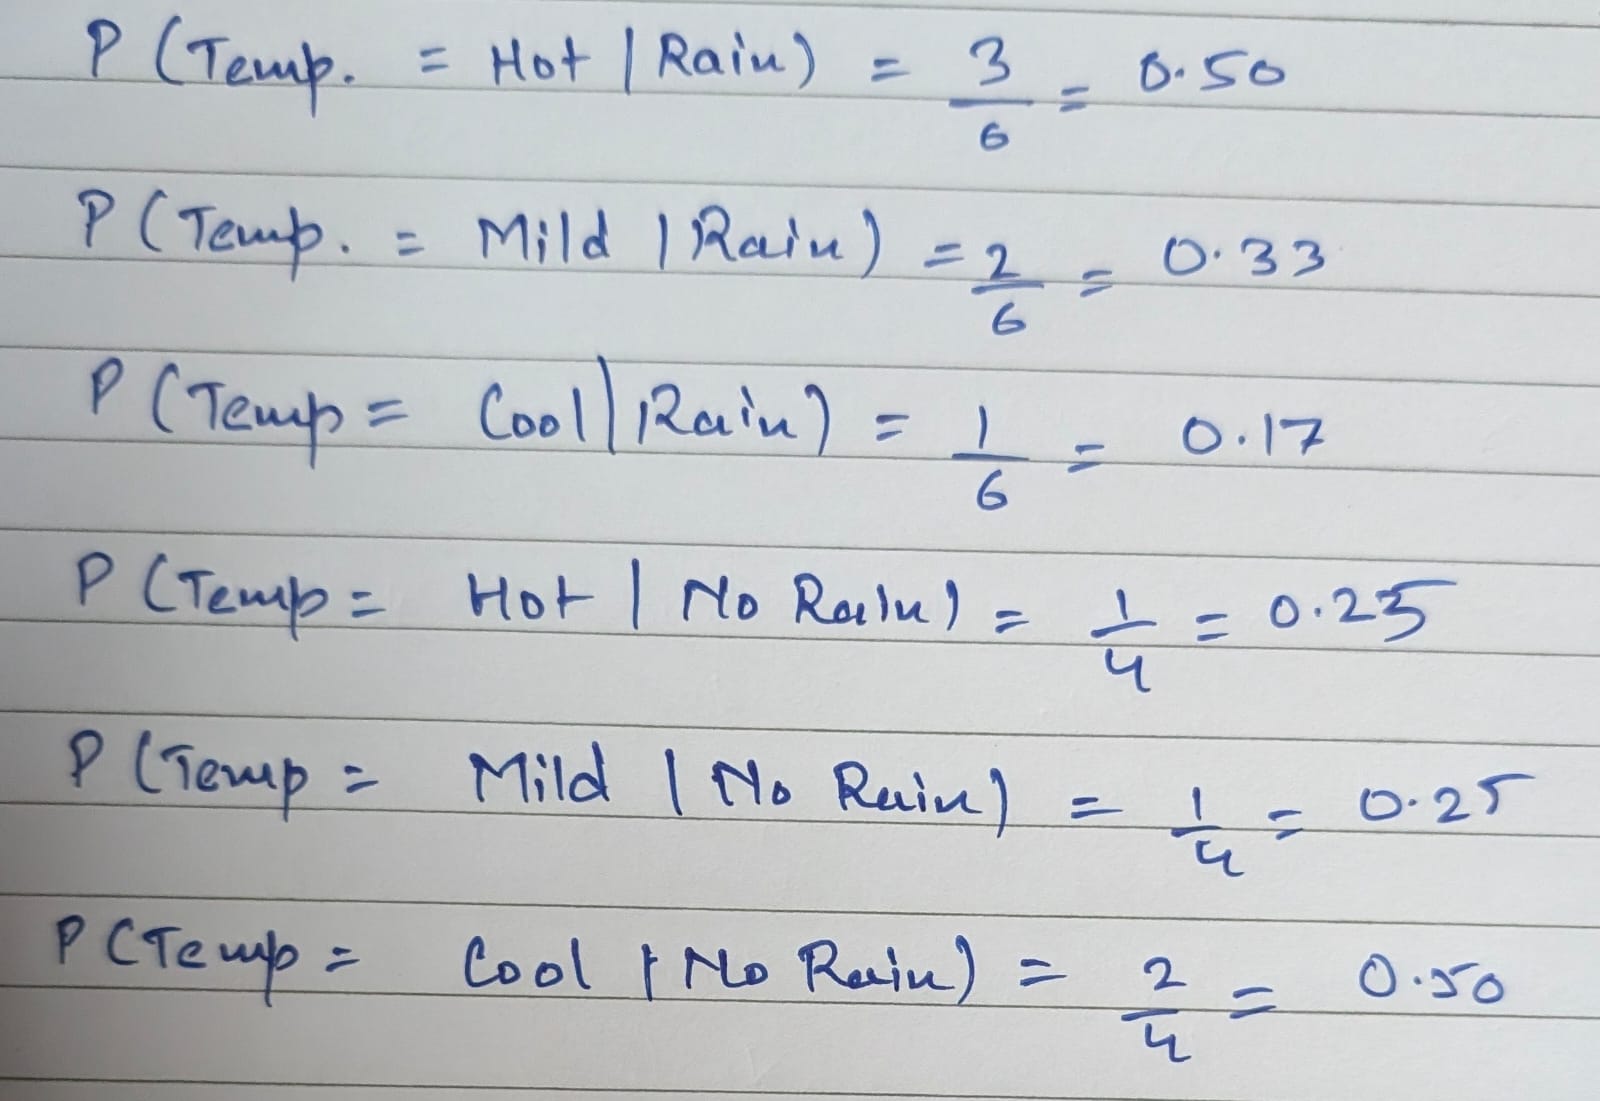 P (Temp. = Hot | Rain) = 3/6 = 0.50
P (Temp. = Mild | Rain) = 2/6 = 0.33
P (Temp = Cool | Rain) = 1/6 = 0.17
P (Temp = Hot | No Rain) = 1/4 = 0.25
P (Temp = Mild | No Rain) = 1/4 = 0.25
P (Temp = Cool | No Rain) = 2/4 = 0.50